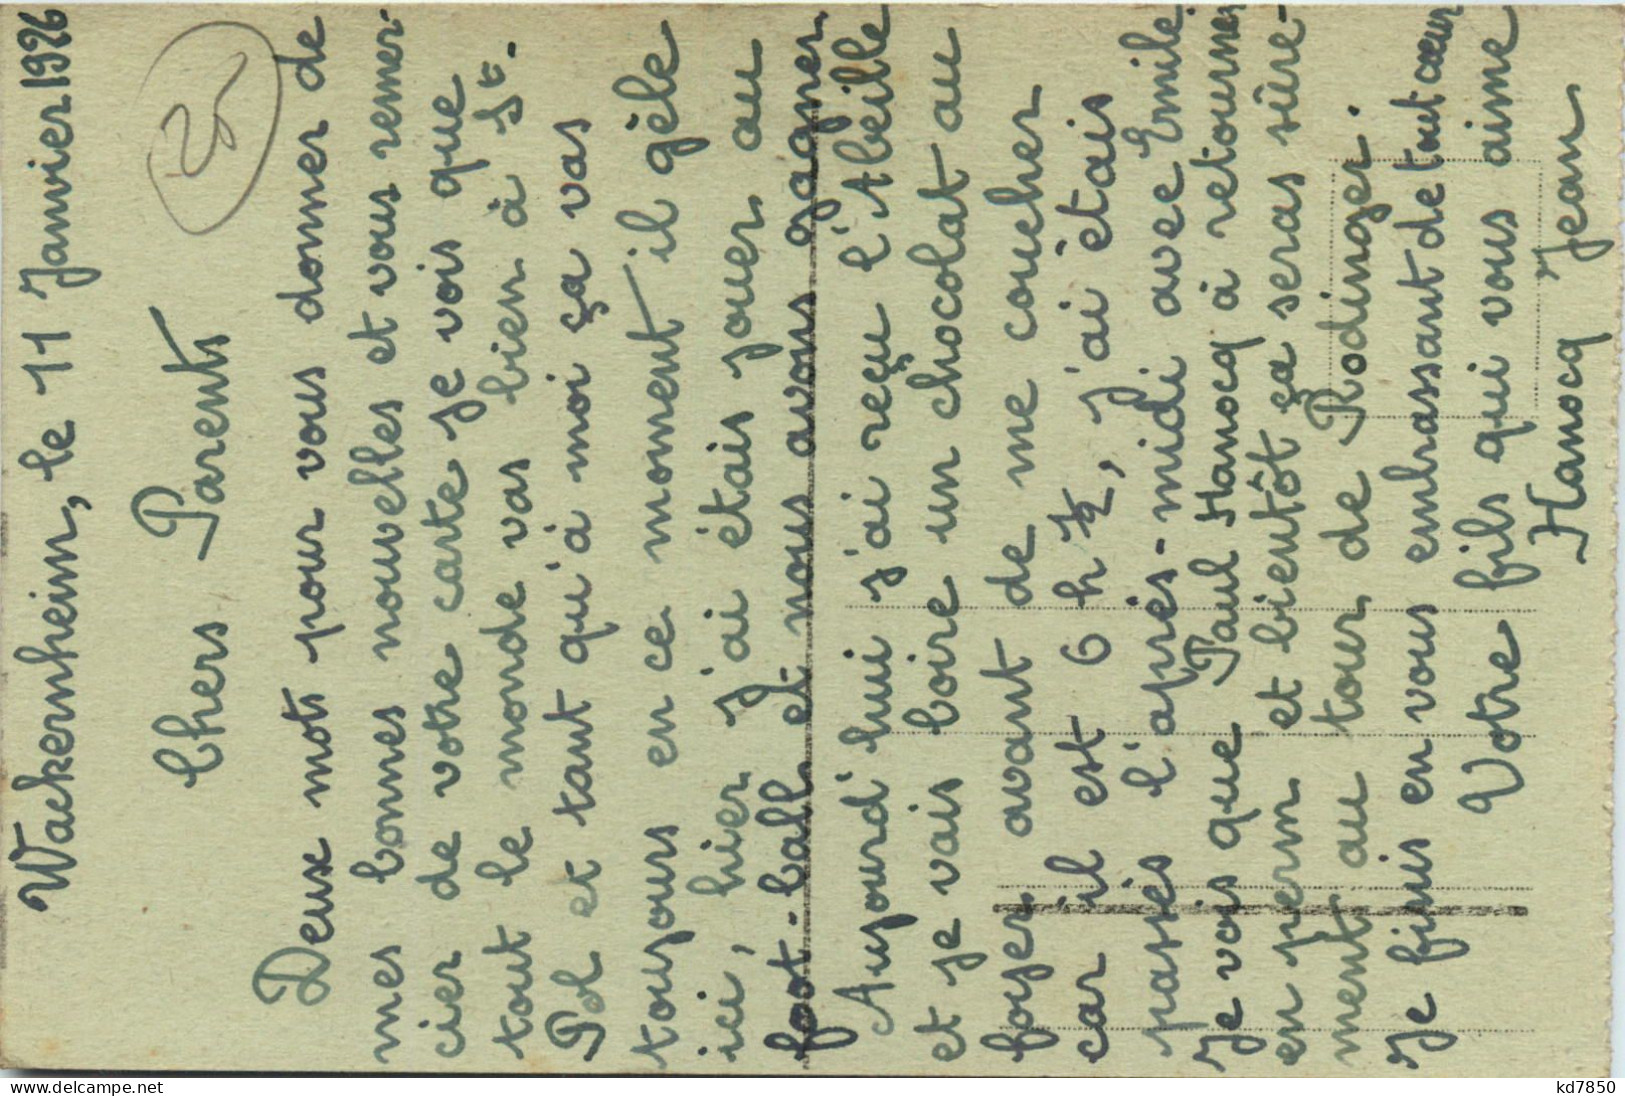 Wackernheim, le 11 Janvier 1926
25
Chers Parents
Deux mots pour vous donner de
mes bonnes nouvelles et vous remer-
cier de votre carte je vois que
tout le monde vas bien à St.
Pol et tant qu'à moi ça vas
toujours en ce moment il gèle
ici, hier j'ai étais jouer au
foot-ball et nous avons gagner
Aujourd'hui j'ai reçu l'Abeille
et je vais boire un chocolat au
foyer avant de me coucher
car il est 6 h ½, j'ai étais
passés l'après-midi avec Emile.
Je vois que Paul Hanocq à retourner
en perm et bientôt ça seras sûre-
ment au tour de Rodinger.
Je finis en vous embrassant de tout cœur
Votre fils qui vous aime
Hanocq Jean
delcampe.net
kd7850